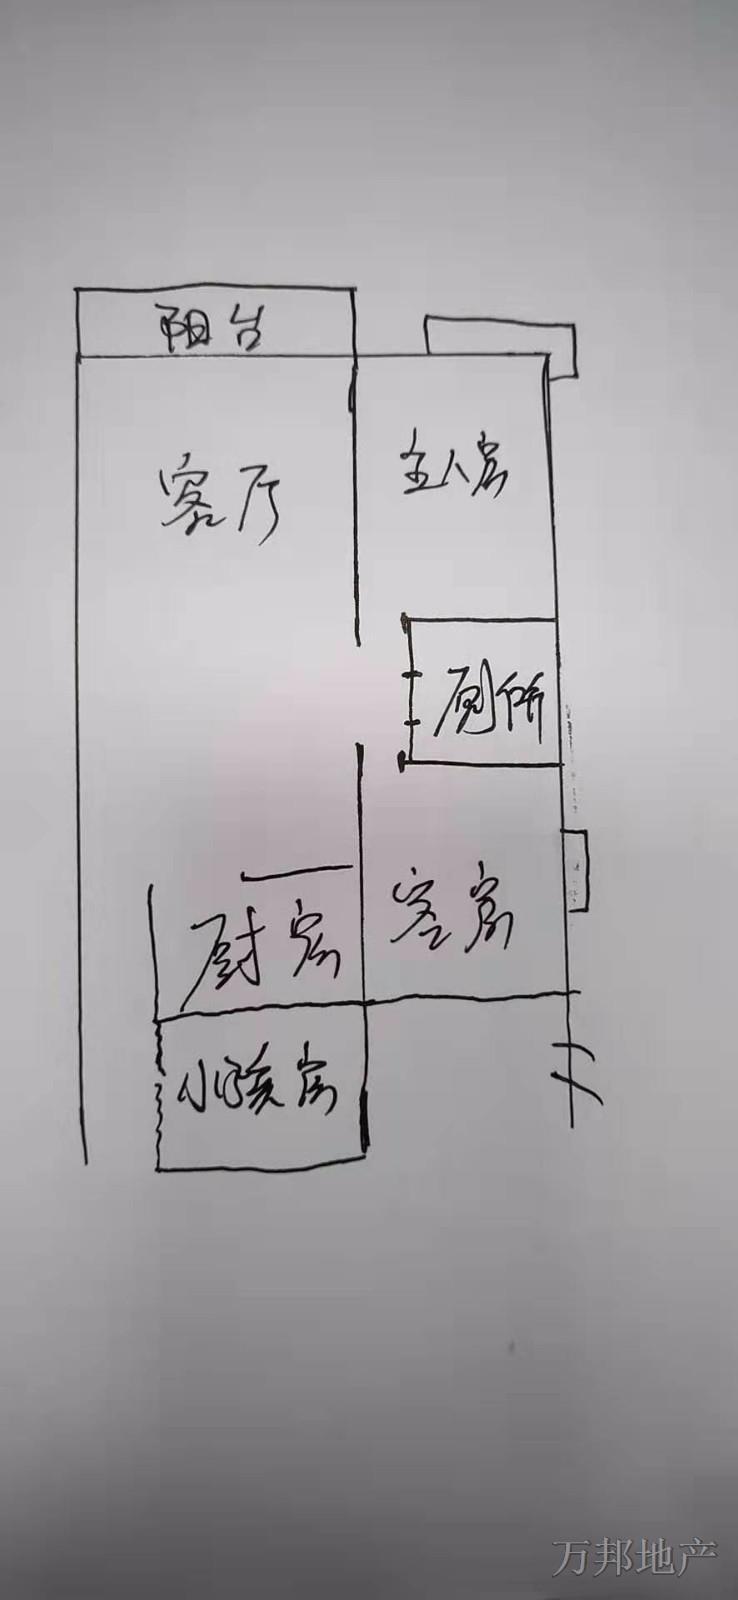 阳台
客厅
主人房
厕所
厨房
客房
小孩房
万邦地产